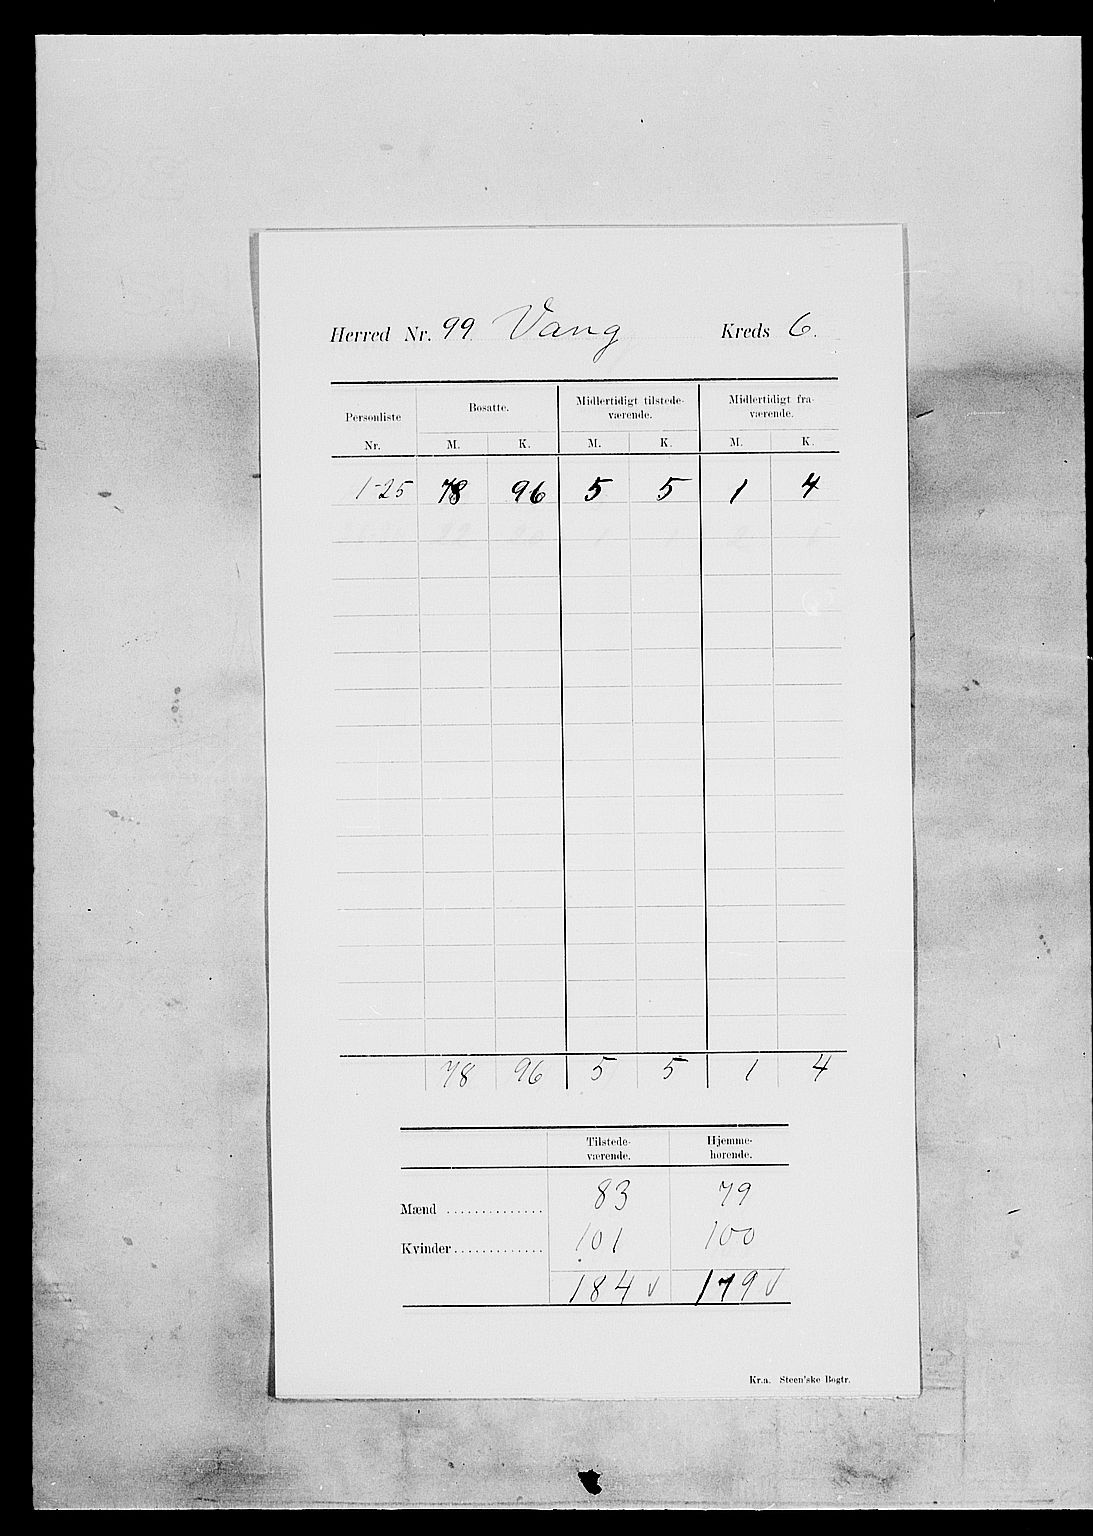 Herred Nr. 99. Vang Kreds 6.
Personliste Nr. Bosatte. Midlertidigt tilstede-værende. Midlertidigt fra-værende.
M. K. M. K. M. K.
1-25 78 96 5 5 1 4
78 96 5 5 1 4
Tilstede-værende. Hjemme-hørende.
Mænd .............. 83 79
Kvinder ............. 101 100
184 v 179 v
Kr.a. Steen'ske Bogtr.